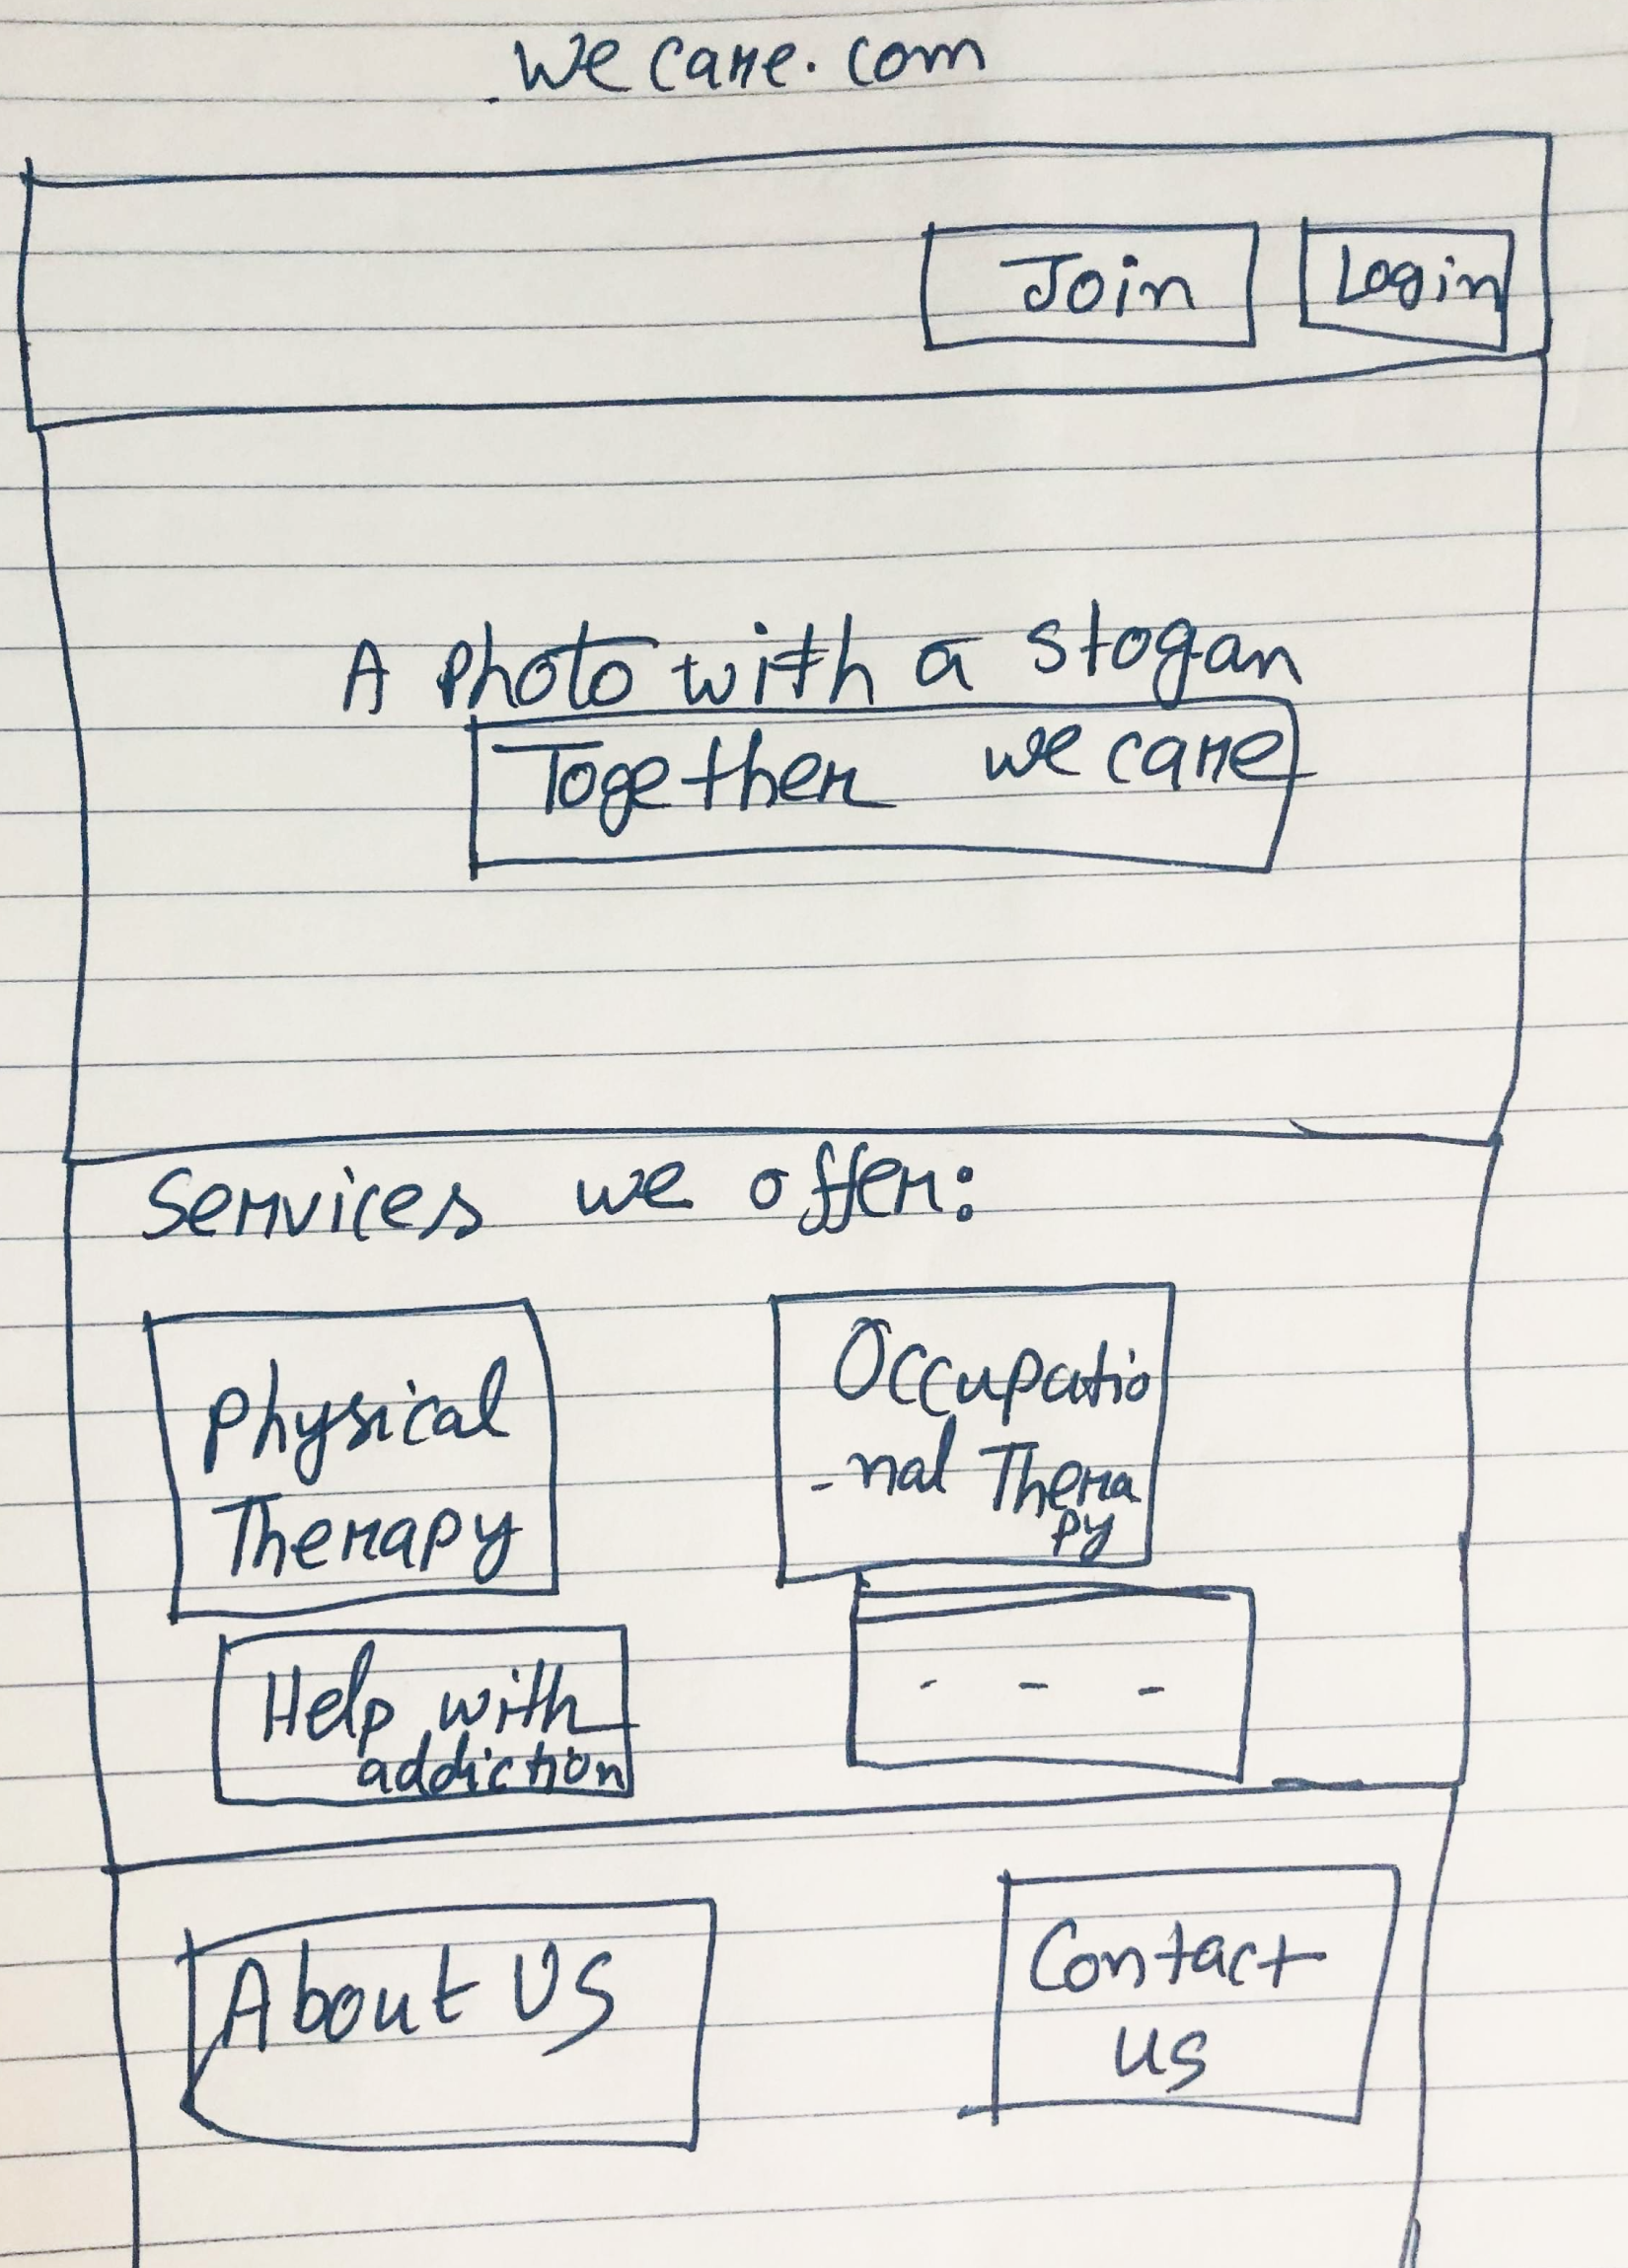 We care.com
Join
Login
A photo with a slogan
Together we care
Services we offer:
Physical
Therapy
Occupatio
-nal Thera
py
Help with
addiction
- - -
About US
Contact
us